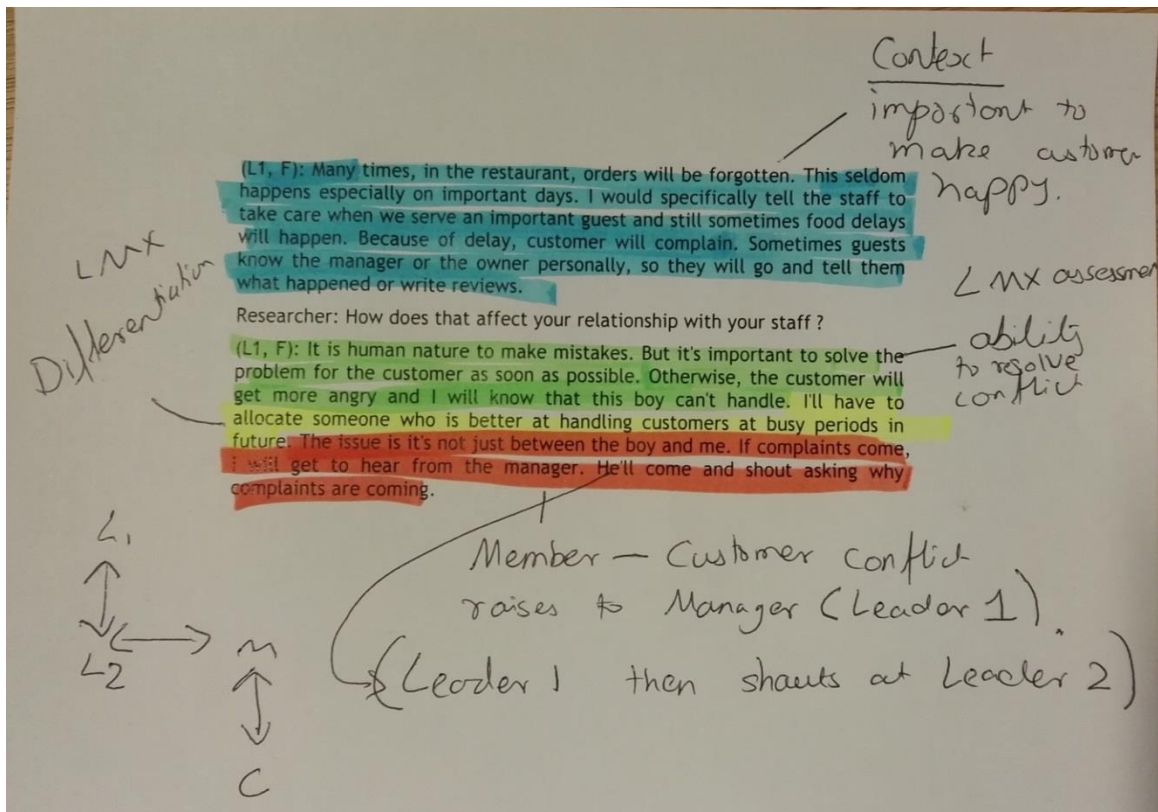 Context
important to
make customer
happy.
(L1, F): Many times, in the restaurant, orders will be forgotten. This seldom
happens especially on important days. I would specifically tell the staff to
take care when we serve an important guest and still sometimes food delays
will happen. Because of delay, customer will complain. Sometimes guests
know the manager or the owner personally, so they will go and tell them
what happened or write reviews.
LMX
Differentiation
Researcher: How does that affect your relationship with your staff ?
(L1, F): It is human nature to make mistakes. But it's important to solve the
problem for the customer as soon as possible. Otherwise, the customer will
get more angry and I will know that this boy can't handle. I'll have to
allocate someone who is better at handling customers at busy periods in
future. The issue is it's not just between the boy and me. If complaints come,
i will get to hear from the manager. He'll come and shout asking why
complaints are coming.
LMX assessmen
ability
to resolve
conflict
Member – Customer conflict
raises to Manager (Leader 1).
(Leader 1 then shouts at Leader 2)
L1
L2 M
C